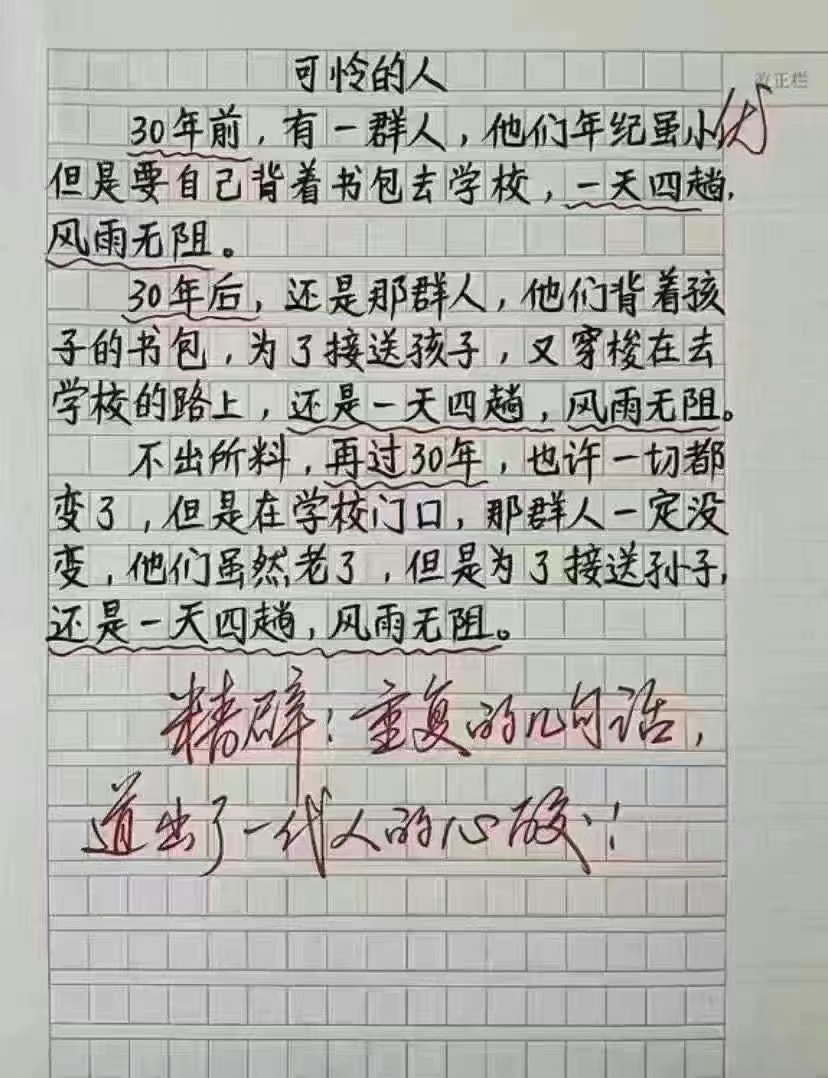 改正栏
可怜的人
30年前，有一群人，他们年纪虽小
优
但是要自己背着书包去学校，一天四趟，
风雨无阻。
30年后，还是那群人，他们背着孩
子的书包，为了接送孩子，又穿梭在去
学校的路上，还是一天四趟，风雨无阻。
不出所料，再过30年，也许一切都
变了，但是在学校门口，那群人一定没
变，他们虽然老了，但是为了接送孙子，
还是一天四趟，风雨无阻。
精辟！重复的几句话，
道出了一代人的心酸！！